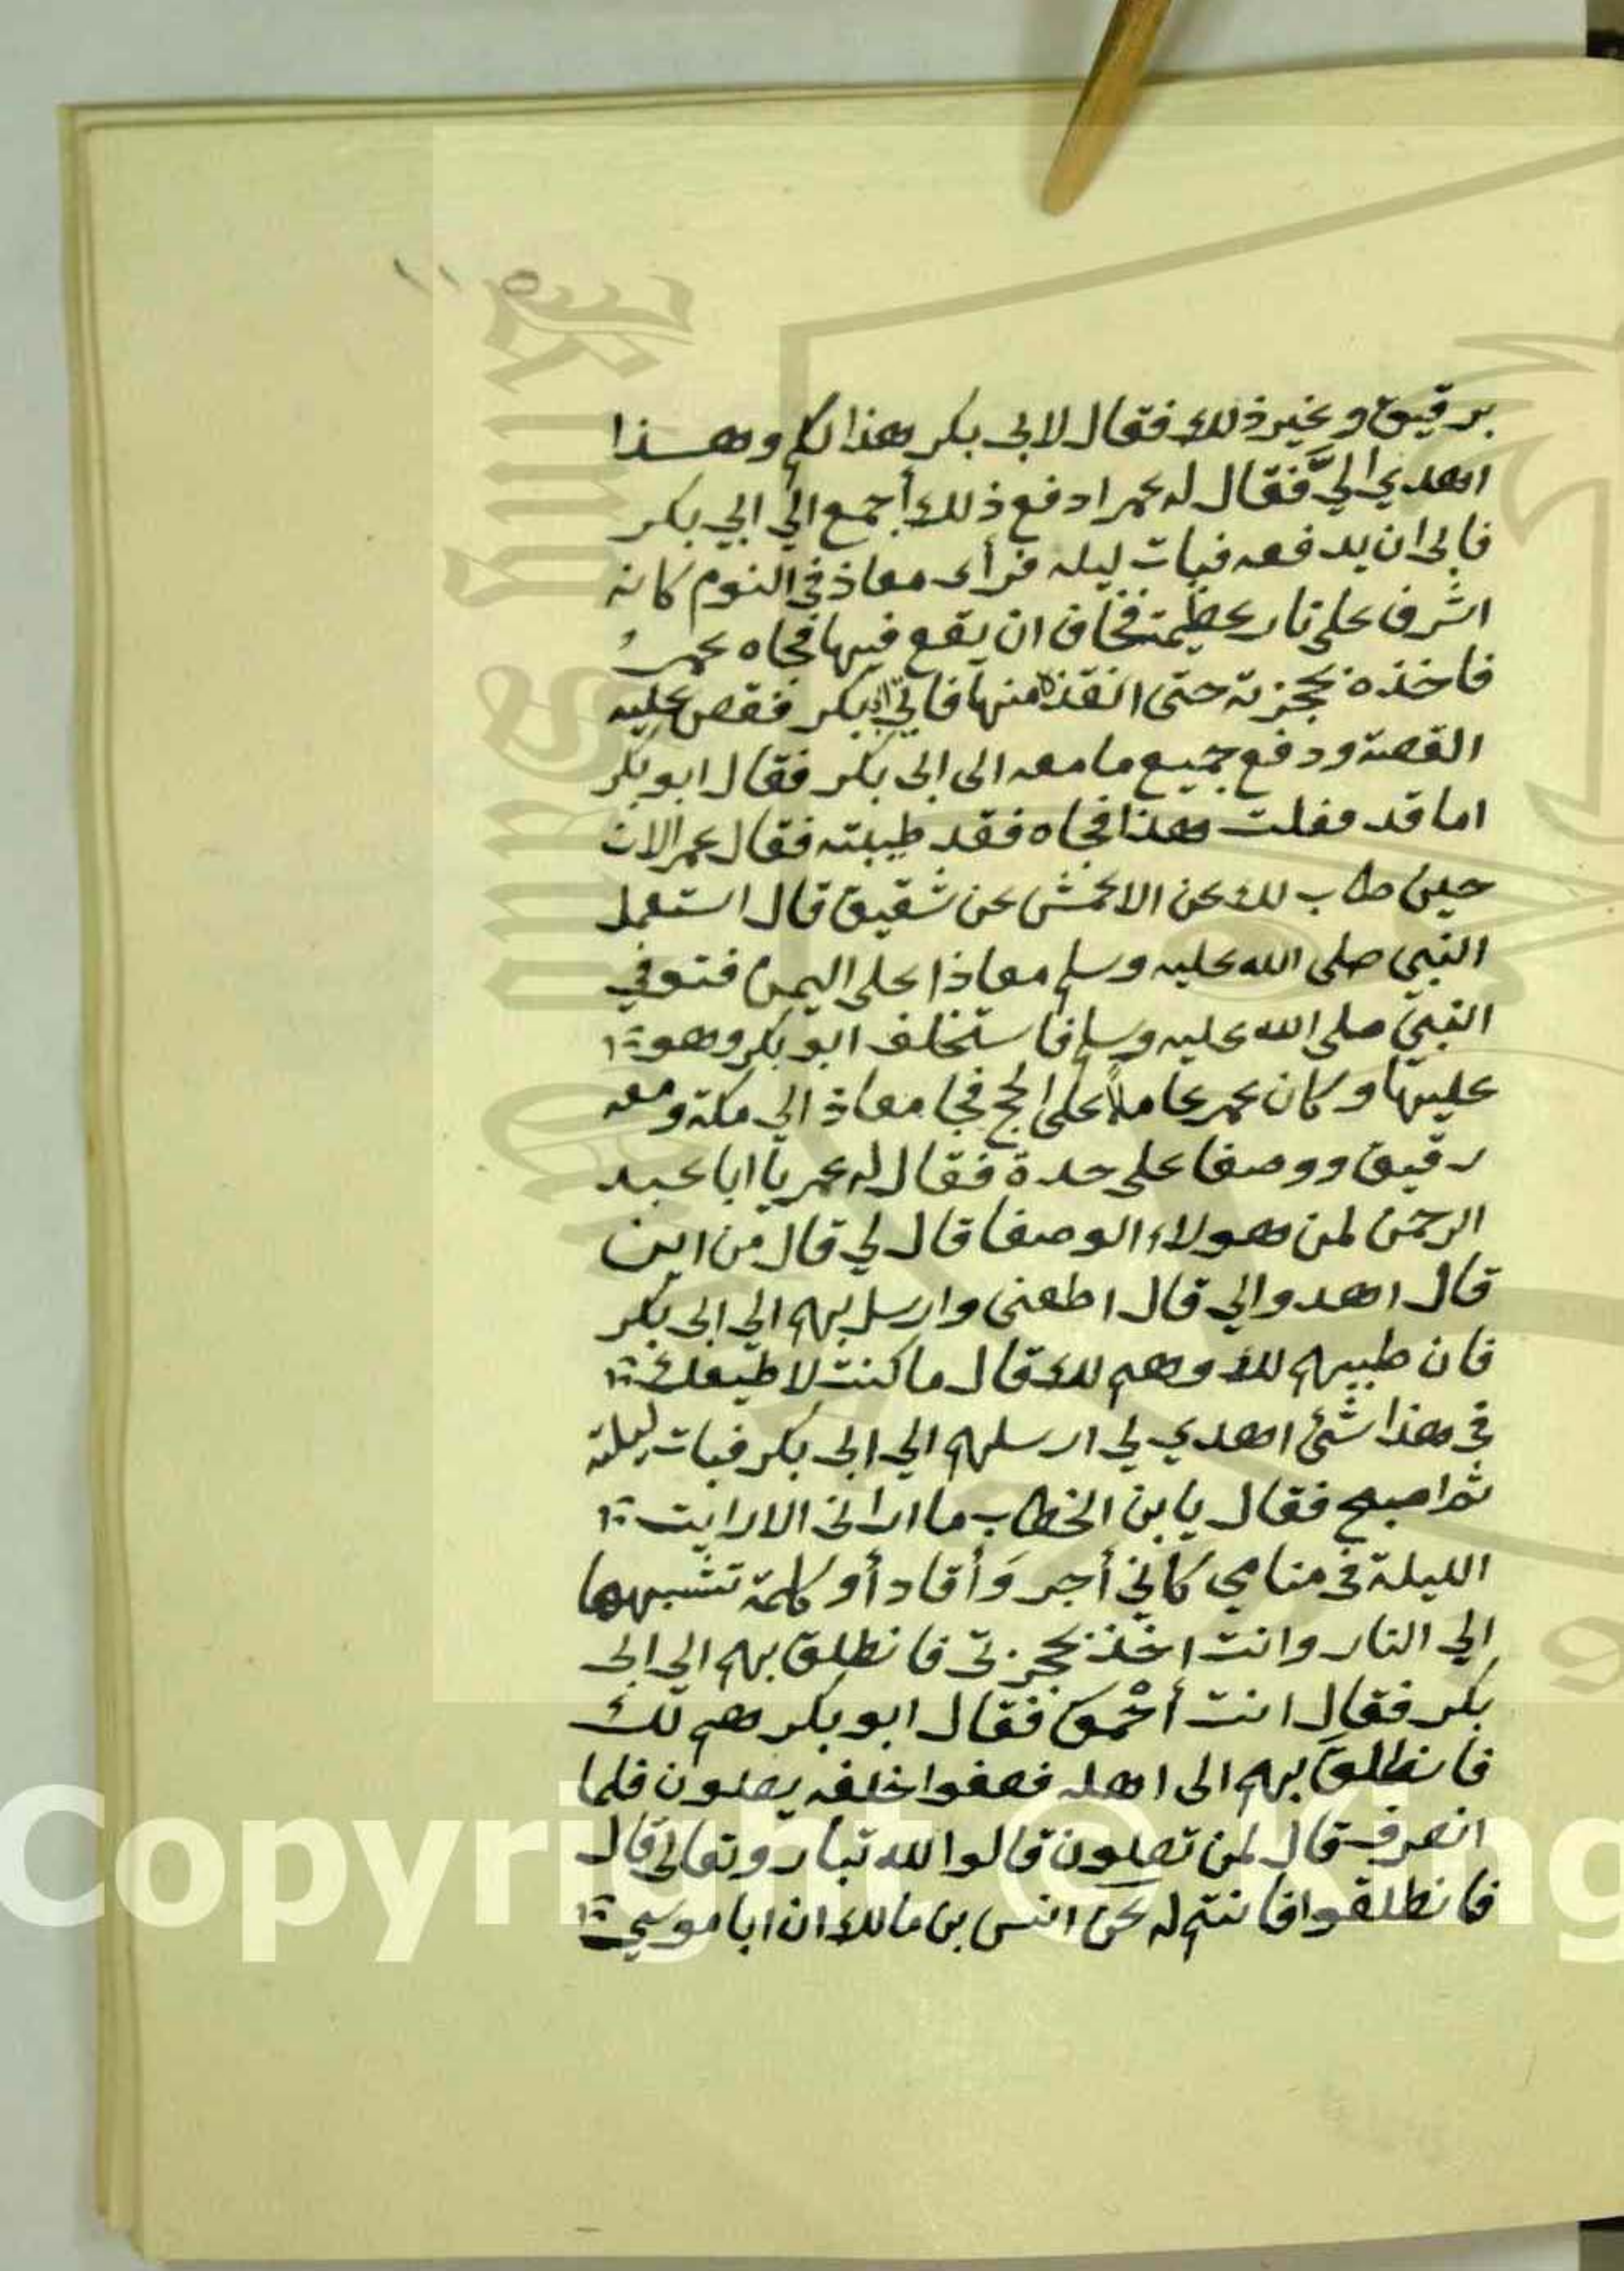 برقيق وغير ذلك فقال لابى بكر هذا لكم وهذا
اهدي اليَّ فقال له عمر ادفع ذلك أجمع الي ابي بكر
فابى ان يدفعه فبات ليله فرأى معاذ في النوم كانه
اشرف على نار عظيمة فخاف ان يقع فيها فجاه عمرُ
فاخذه بحجزته حتى انقذه منها فاتى ابا بكر فقص عليه
القصة ودفع جميع ما معه الى ابى بكر فقال ابو بكر
اما قد فعلت هذا فجاه فقد طيبته فقال عمر الان
حين طاب لك عن الاعمش عن شقيق قال استعمل
النبي صلى الله عليه وسلم معاذا على اليمن فتوفي
النبي صلى الله عليه وسلم فاستخلف ابو بكر وهو
عليها وكان عمر عاملاً على الحج فجا معاذ الي مكة ومعه
رقيق ووصفا على حدة فقال له عمر يا ابا عبد
الرحمن لمن هولاء الوصفا قال لي قال من اين
قال اهدوا لي قال اطعنى وارسل بهم الي ابى بكر
فان طيبهم لك وهم لك قال ما كنت لاطيعك
في هذا شئ اهدي لي ارسلهم الي ابى بكر فبات ليلة
ثم اصبح فقال يا بن الخطاب ما ارانى الا رايت
الليلة في منامي كاني أجر وَأقاد أو كلمة تشبهها
الي النار وانت اخذ بحجزتى فانطلق بهم الي ابى
بكر فقال انت أحْمق فقال ابو بكر هم لك
فانطلق بهم الى اهله فصفوا خلفه يصلون فلما
انصرف قال لمن تصلون قالوا لله تبارو وتعالى قال
فانطلقوا فانتم له عن انس بن مالك ان ابا موسي
Copyright © King